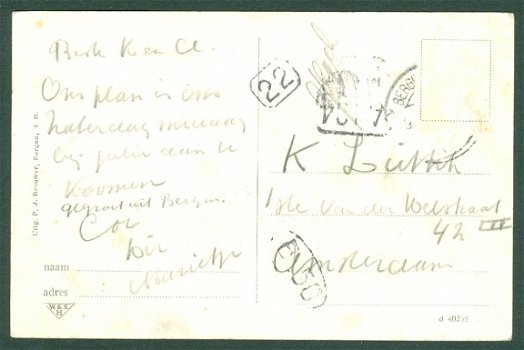 Beste K en Cl.
Ons plan is om
Zaterdag middag
bij jullie aan te
Koomen
gegroet uit Bergen.
Cor
Wir
Marietje
naam
adres
W. & S.
H
Uitg. P. J. Brouwer, Bergen, N. H.
22
BERG
K Lüttik
1ste van der Helststraat
42 III
Amsterdam
d 40255